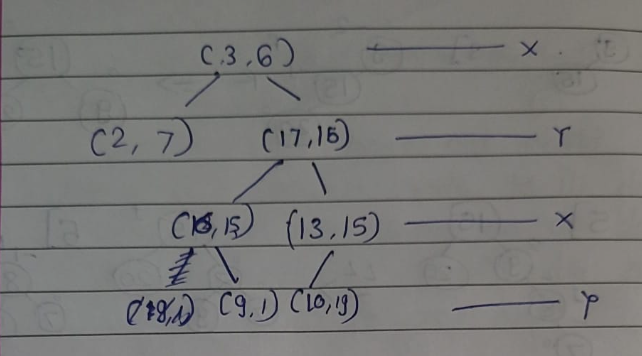 (3,6) X
(2, 7) (17,15) Y
(13,15) X
(9,1) (10,19) Y